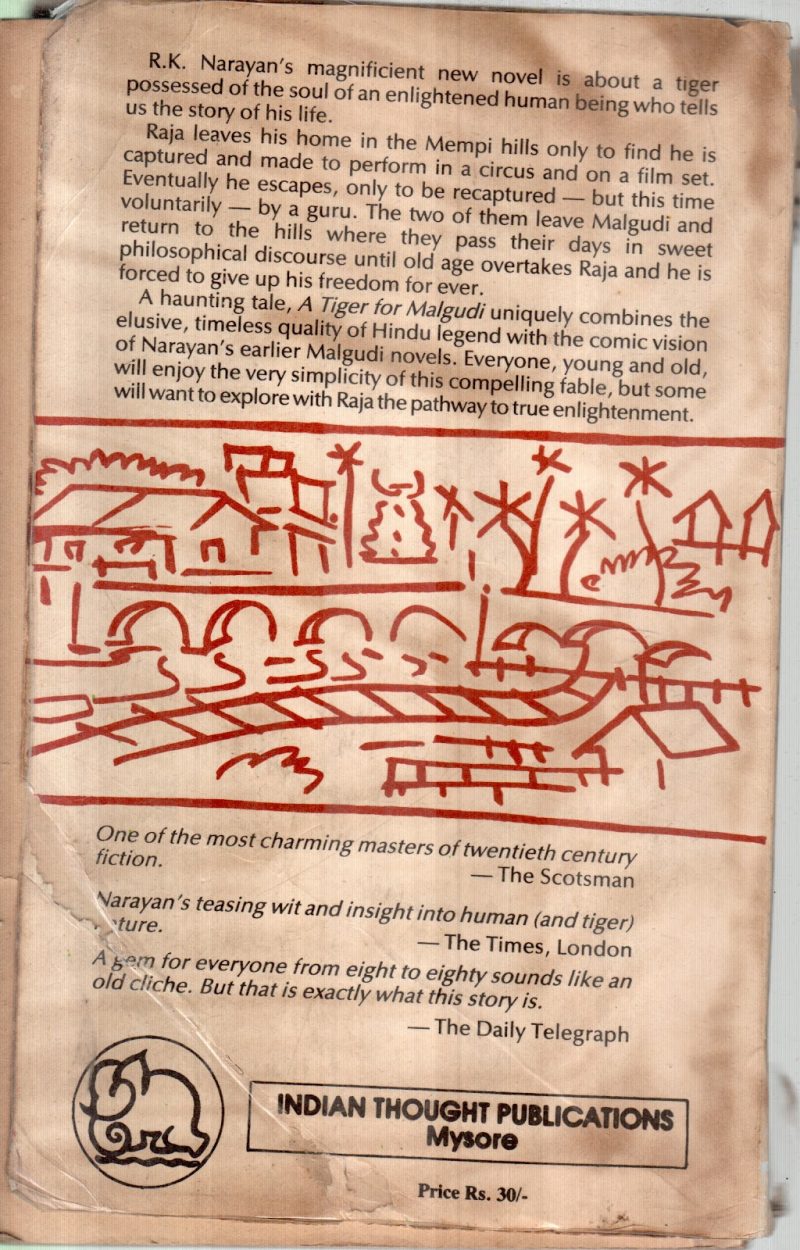 R.K. Narayan's magnificient new novel is about a tiger
possessed of the soul of an enlightened human being who tells
us the story of his life.
Raja leaves his home in the Mempi hills only to find he is
captured and made to perform in a circus and on a film set.
Eventually he escapes, only to be recaptured — but this time
voluntarily — by a guru. The two of them leave Malgudi and
return to the hills where they pass their days in sweet
philosophical discourse until old age overtakes Raja and he is
forced to give up his freedom for ever.
A haunting tale, A Tiger for Malgudi uniquely combines the
elusive, timeless quality of Hindu legend with the comic vision
of Narayan's earlier Malgudi novels. Everyone, young and old,
will enjoy the very simplicity of this compelling fable, but some
will want to explore with Raja the pathway to true enlightenment.
One of the most charming masters of twentieth century
fiction.
— The Scotsman
Narayan's teasing wit and insight into human (and tiger)
nature.
— The Times, London
A gem for everyone from eight to eighty sounds like an
old cliche. But that is exactly what this story is.
— The Daily Telegraph
INDIAN THOUGHT PUBLICATIONS
Mysore
Price Rs. 30/-